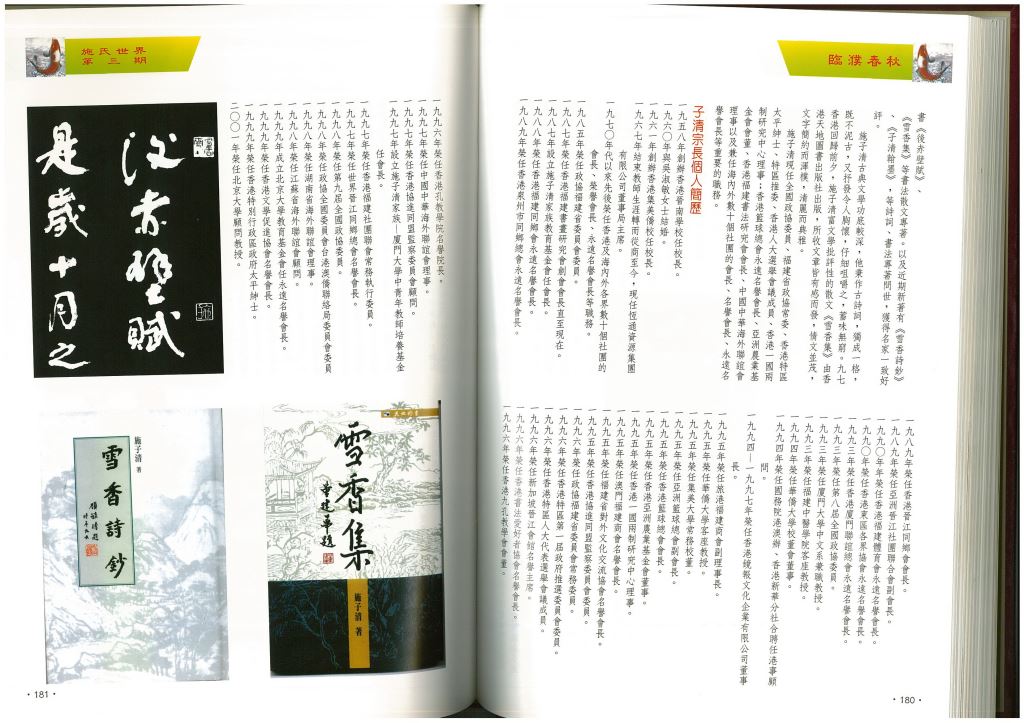 臨濮春秋
書《後赤壁賦》、
《雪香集》等書法散文專著。以及近期新著有《雪香詩鈔》
、《子清翰墨》，等詩詞、書法專著問世，獲得名家一致好
評。
施子清古典文學功底較深，他秉作古詩詞，獨成一格，
既不泥古，又抒發令人胸懷，仔細咀嚼之，蓄味無窮。九七
香港回歸前夕，施子清富文學批評性的散文《雪香集》由香
港天地圖書出版社出版，所收文章皆有感而發，倩文並茂，
文字簡約而渾樸，清麗而典雅。
施子清現任全國政協委員、福建省政協常委、香港特區
太平紳士、特區推委、香港人大選舉會議成員、香港一國兩
制研究中心理事；香港籃球總會永遠名譽會長、亞洲農業基
金會會董、香港福建書法研究會會長、中國中華海外聯誼會
理事以及兼任海內外數十個社團的會長、名譽會長、永遠名
譽會長等重要的職務。
子清宗長個人簡歷
一九五八年創辦香港晉南學校任校長。
一九六〇年與吳淑敏女士結婚。
一九六一年創辦香港集美僑校任校長。
一九六七年結束教師生涯轉而從商至今，現任恆通資源集團
有限公司董事局主席。
一九七〇年代以來先後榮任香港及海內外各界數十個社團的
會長、榮譽會長、永遠名譽會長等職務。
一九八五年榮任政協福建省委員會委員。
一九八七年榮任香港福建書畫研究會創會會長直至現在。
一九八七年設立施子清家族教育基金會任會長。
一九八八年榮任香港福建同鄉會永遠名譽會長。
一九八九年榮任香港泉州市同鄉總會永遠名譽會長。
一九八九年榮任香港晉江同鄉會會長。
一九八九年榮任亞洲晉江社團聯合會副會長。
一九九〇年榮任香港福建體育會永遠名譽會長。
一九九〇年榮任香港東區各界協會永遠名譽會長。
一九九三年榮任香港廈門聯誼總會永遠名譽會長。
一九九三年榮任第八屆全國政協委員。
一九九三年榮任廈門大學中文系兼職教授。
一九九三年榮任福建中醫學院客座教授。
一九九四年榮任華僑大學校董會董事。
一九九四年榮任國務院港澳辦、香港新華分社合聘任港事顧
問。
一九九四－一九九七年榮任香港鏡報文化企業有限公司董事
長。
一九九五年榮任旅港福建商會副理事長。
一九九五年榮任華僑大學客座教授。
一九九五年榮任集美大學常務校董。
一九九五年榮任亞洲籃球總會副會長。
一九九五年榮任香港籃球總會會長。
一九九五年榮任香港亞洲農業基金會董事。
一九九五年榮任香港一國兩制研究中心理事。
一九九五年榮任澳門福建商會名譽會長。
一九九五年榮任福建省對外文化交流協會名譽會長。
一九九五年榮任香港協進同盟監察委員會委員。
一九九六年榮任政協福建省委員會常務委員。
一九九六年榮任香港特區第一屆政府推選委員會委員。
一九九六年榮任香港特區人大代表選舉會議成員。
一九九六年榮任新加坡晉江會館名譽主席。
一九九六年榮任香港書法愛好者協會名譽會長。
一九九六年榮任香港九孔教學會會董。
·180·
施氏世界
第三期
一九九六年榮任香港孔教學院名譽院長。
一九九七年榮任中國中華海外聯誼會理事。
一九九七年榮任香港協進同盟監察委員會顧問。
一九九七年設立施子清家族－廈門大學中青年教師培養基金
任會長。
一九九七年榮任香港福建社團聯會常務執行委員。
一九九七年榮任世界晉江同鄉總會名譽會長。
一九九八年榮任第九屆全國政協委員。
一九九八年榮任政協全國委員會台港澳僑聯絡局委員會委員
一九九八年榮任湖南省海外聯誼會理事。
一九九八年榮任江蘇省海外聯誼會顧問。
一九九九年成立北京大學教育基金會任永遠名譽會長。
一九九九年榮任香港文學促進協會名譽會長。
一九九九年榮任香港特別行政區政府太平紳士。
二〇〇一年榮任北京大學顧問教授。
後赤壁賦
是歲十月之
施子清 著
雪香詩鈔
天地圖書
雪香集
施子清 著
·181·